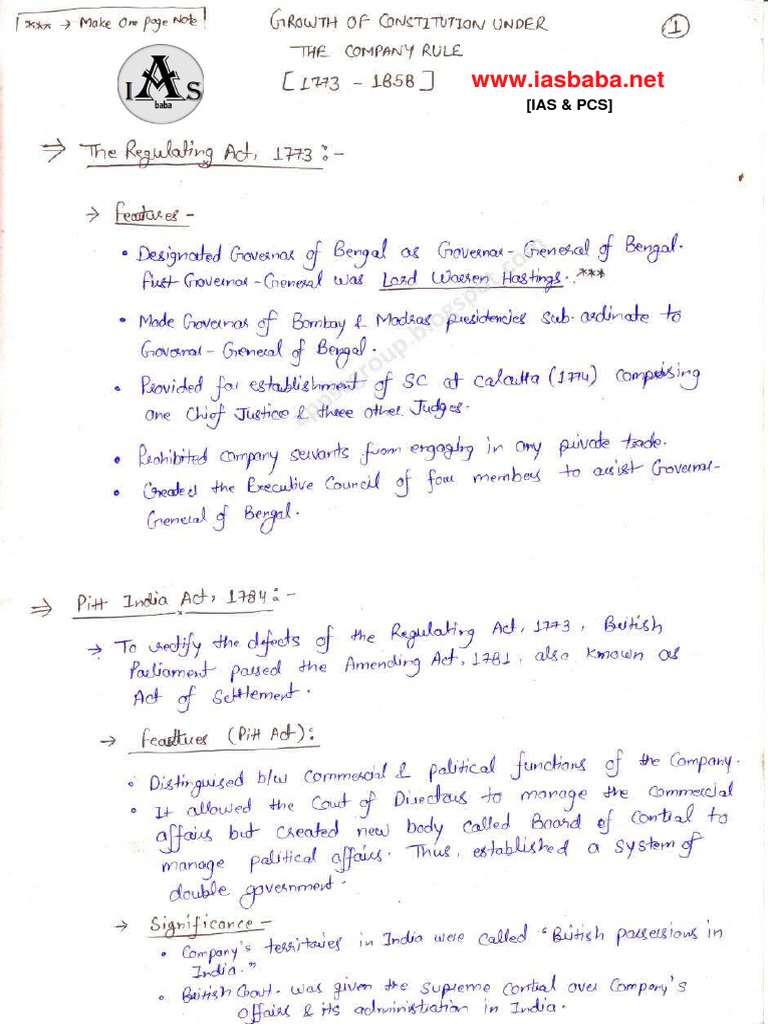 *** → Make One page Note!
GROWTH OF CONSTITUTION UNDER
THE COMPANY RULE
[1773 - 1858]
1
IAS
baba
www.iasbaba.net
[IAS & PCS]
⇒ The Regulating Act, 1773:-
→ Features -
• Designated Governor of Bengal as Governor-General of Bengal.
First Governor-General was Lord Warren Hastings. ***
• Made Governor of Bombay & Madras presidencies sub-ordinate to
Governor-General of Bengal.
• Provided for establishment of SC at Calcutta (1774) comprising
one Chief Justice & three other Judges.
• Prohibited company servants from engaging in any private trade.
• Created the Executive Council of four members to assist Governor-
General of Bengal.
⇒ Pitt India Act, 1784:-
→ To rectify the defects of the Regulating Act, 1773, British
Parliament passed the Amending Act, 1781, also known as
Act of Settlement.
→ Features (Pitt Act):
• Distinguised b/w commercial & political functions of the Company.
• It allowed the Court of Directors to manage the commercial
affairs but created new body called Board of Control to
manage political affairs. Thus, established a system of
double government.
→ Significance -
• Company's territories in India were called "British possessions in
India."
• British Govt. was given the supreme control over Company's
affairs & its administration in India.